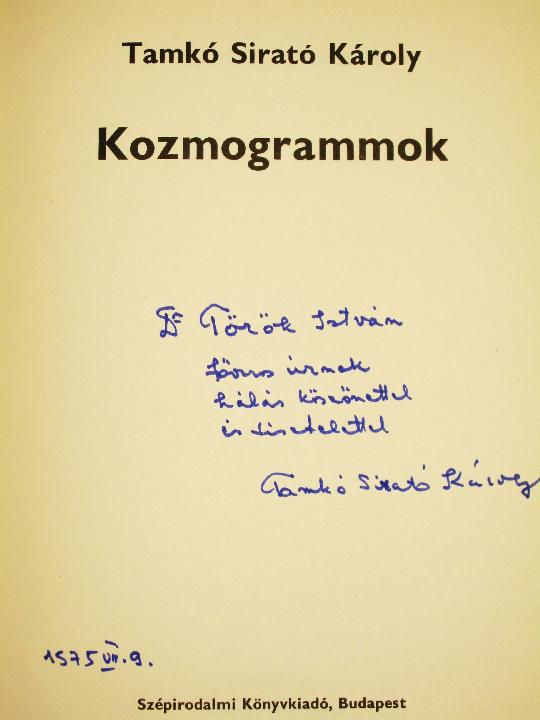 Tamkó Sirató Károly
Kozmogrammok
Dr Török István
főorvos úrnak
hálás köszönettel
és tisztelettel
Tamkó Sirató Károly
1975 VII. 9.
Szépirodalmi Könyvkiadó, Budapest